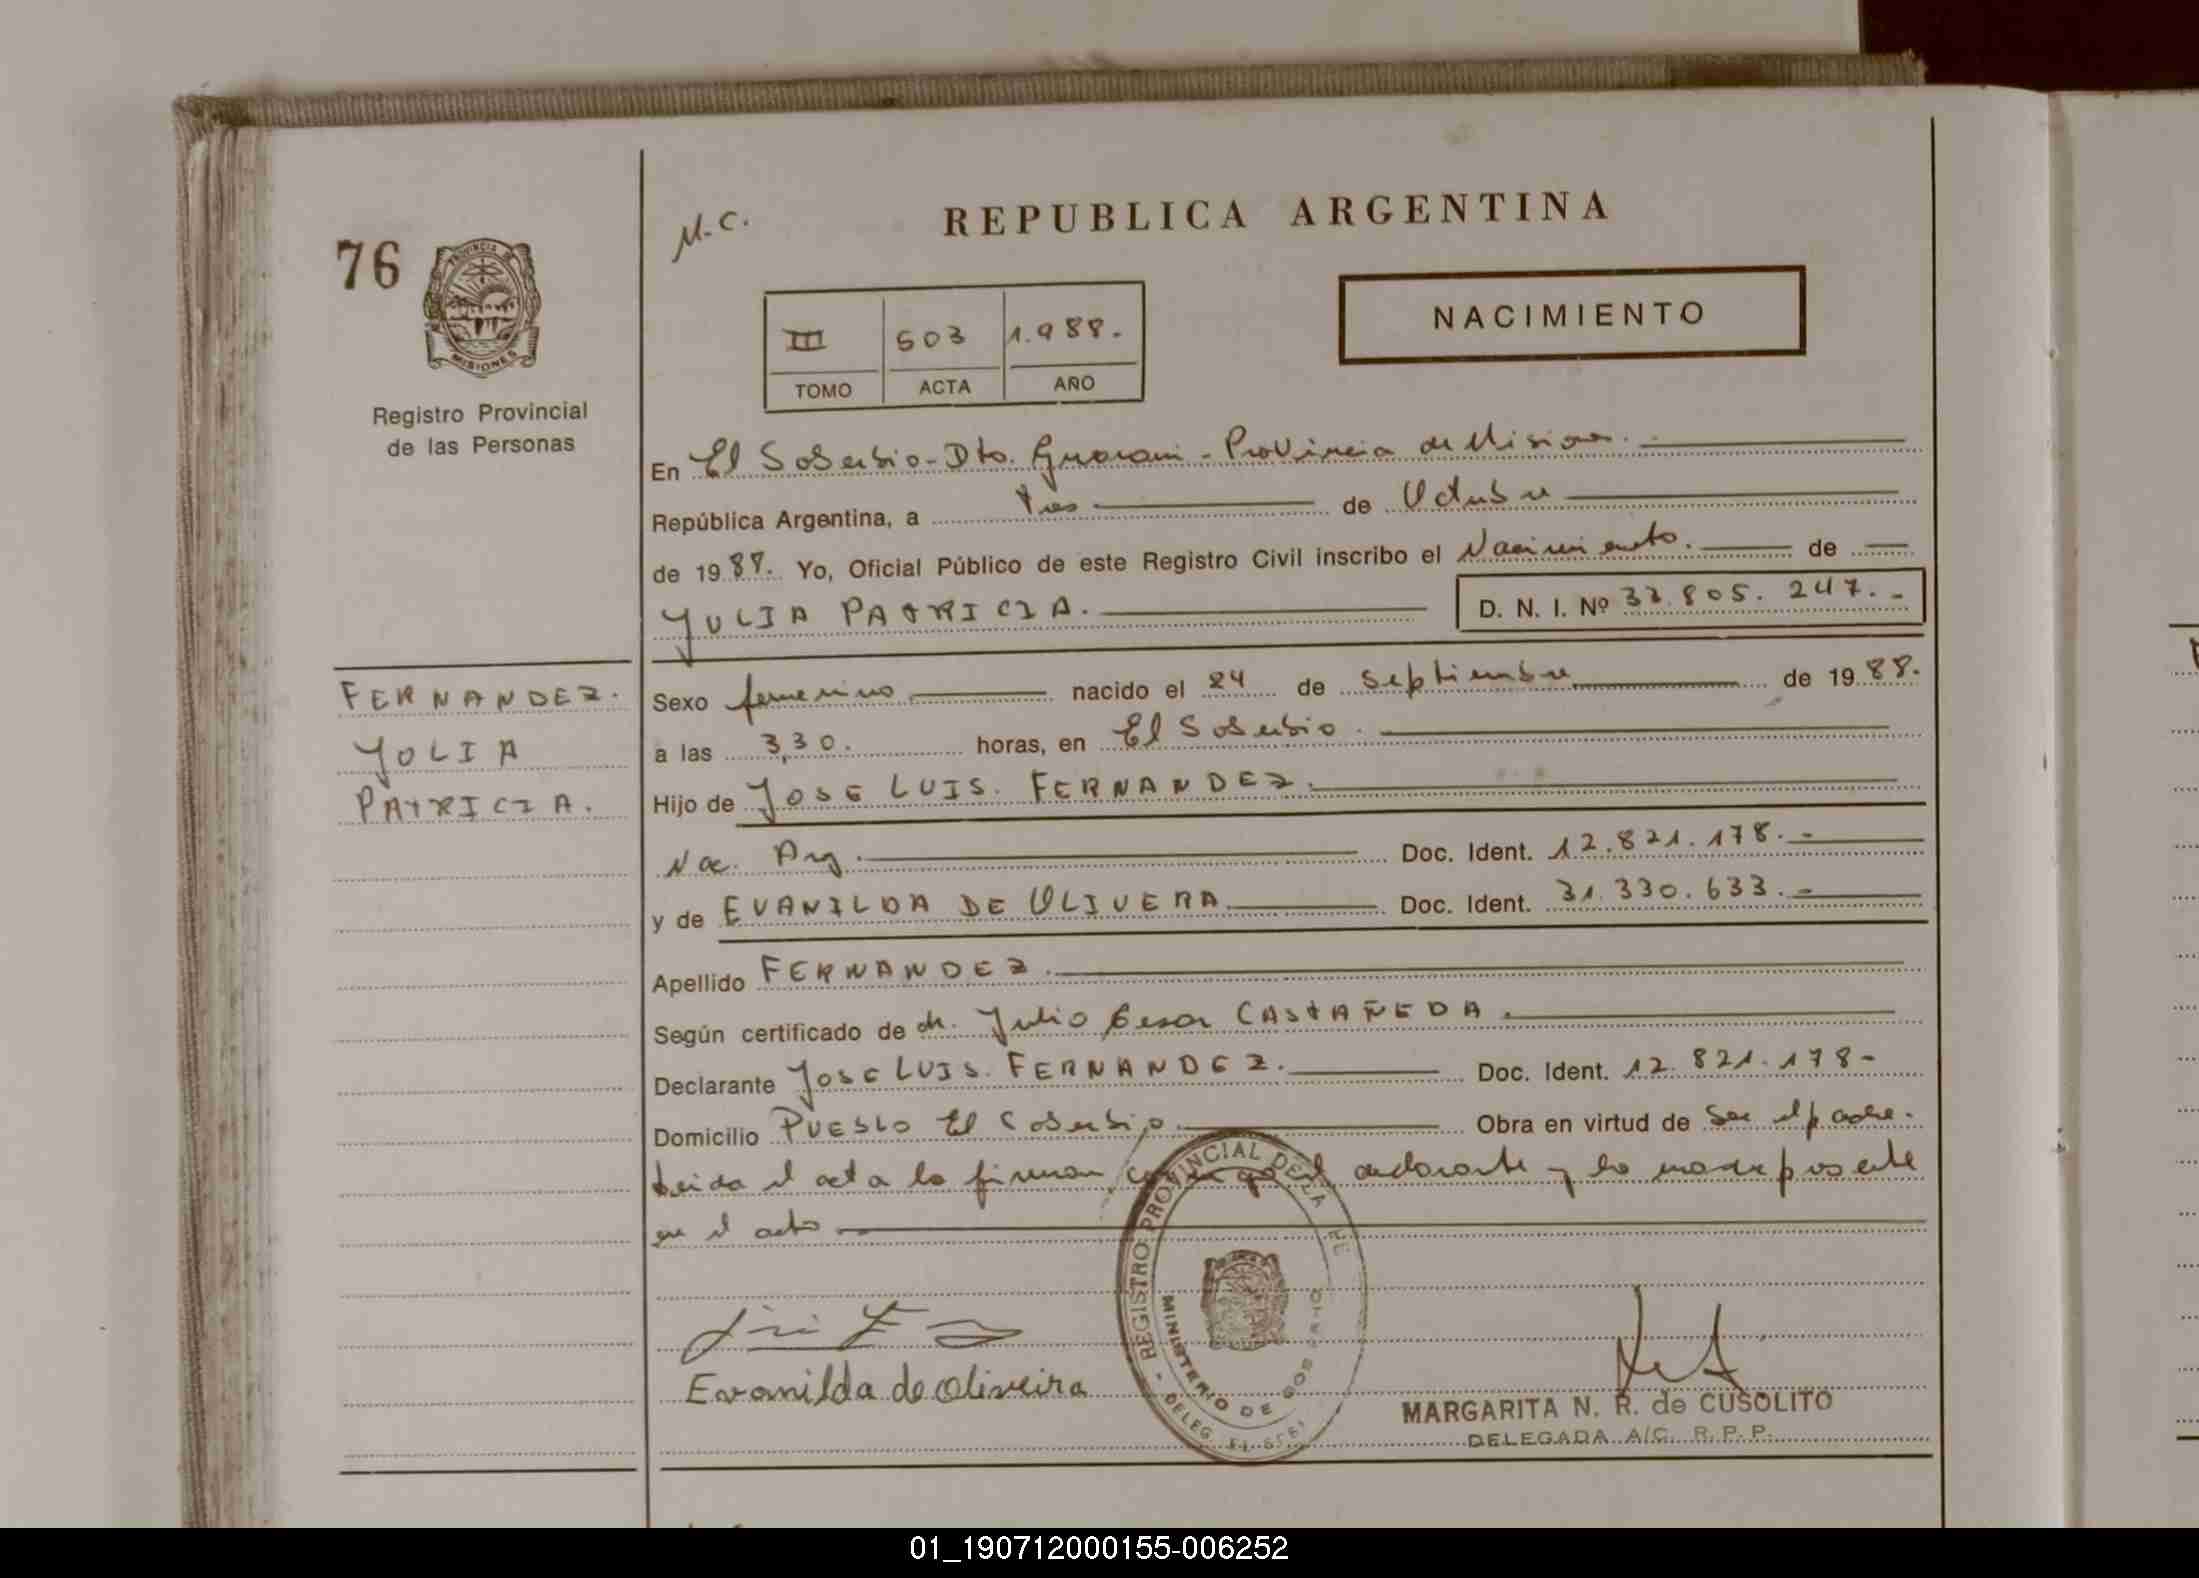 REPUBLICA ARGENTINA
M.C.
76
PROVINCIA DE
MISIONES
Registro Provincial
de las Personas
NACIMIENTO
III 503 1.988.
TOMO ACTA AÑO
En El Soberbio - Dto. Guarani - Provincia de Misiones.
República Argentina, a tres de Octubre
de 1988. Yo, Oficial Público de este Registro Civil inscribo el Nacimiento. de
YULIA PATRICIA. D. N. I. Nº 33.805.247.-
FERNANDEZ.
YULIA
PATRICIA.
Sexo femenino nacido el 24 de Septiembre de 1988.
a las 3,30. horas, en El Soberbio.
Hijo de JOSE LUIS. FERNANDEZ.
Nac. Arg. Doc. Ident. 12.821.178.-
y de EVANILDA DE OLIVERA Doc. Ident. 31.330.633.-
Apellido FERNANDEZ.
Según certificado de dr. Julio Cesar CASTAÑEDA.
Declarante JOSE LUIS. FERNANDEZ. Doc. Ident. 12.821.178-
Domicilio PUEBLO El Soberbio. Obra en virtud de Ser el padre.
Leida el acta la firman conmigo el declarante y la madre presente
en el acto
Evanilda de Oliveira
REGISTRO PROVINCIAL DE LA
MINISTERIO DE GOB
DELEG. EL
MARGARITA N. R. de CUSOLITO
DELEGADA A/C. R. P. P.
01_190712000155-006252